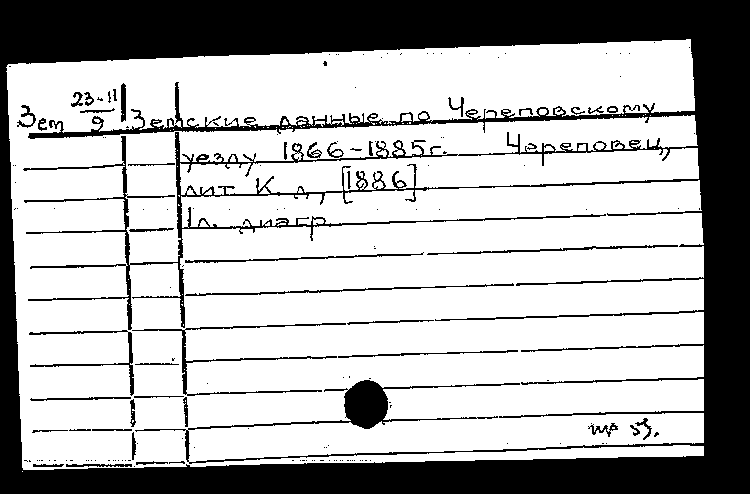 Зем 23-11/9 Земские данные по Череповскому
уезду 1866-1885г. Череповец,
лит. К. д, [1886].
1л. диагр.